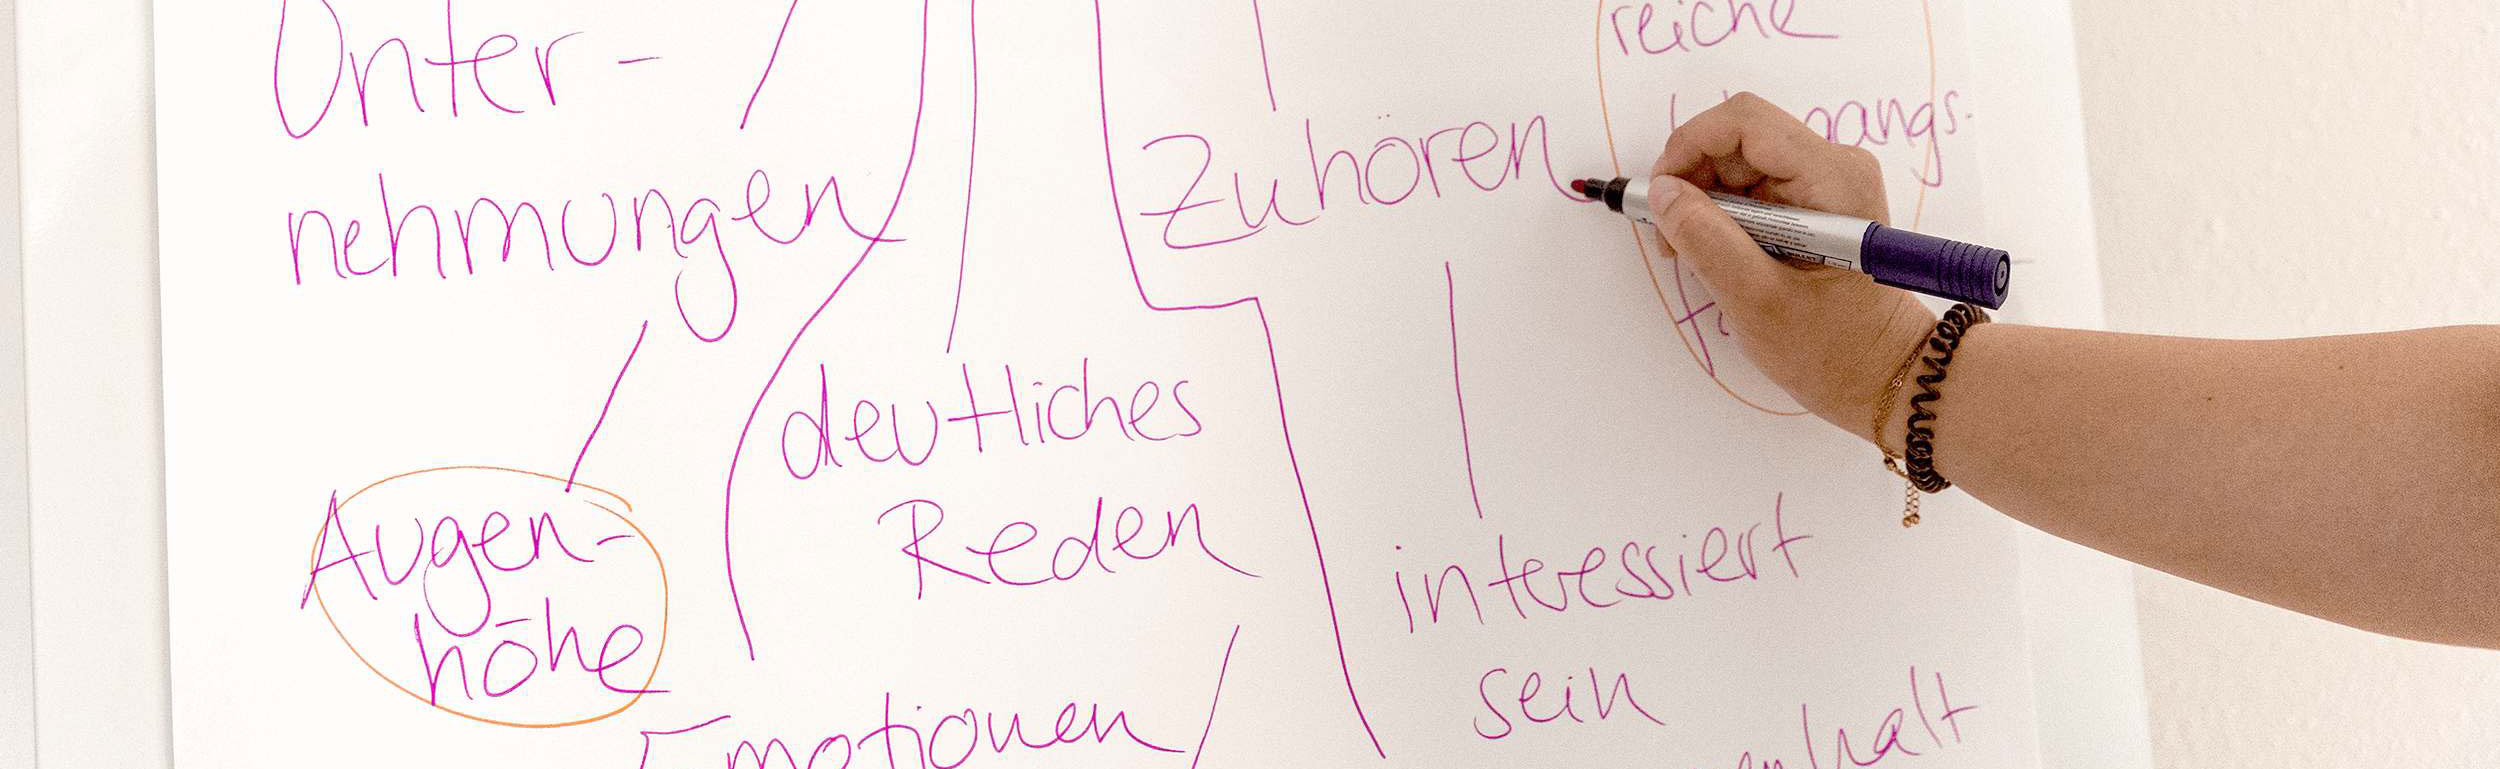 Unter-
nehmungen
Augen-
höhe
deutliches
Reden
Emotionen
Zuhören
interessiert
sein
reiche